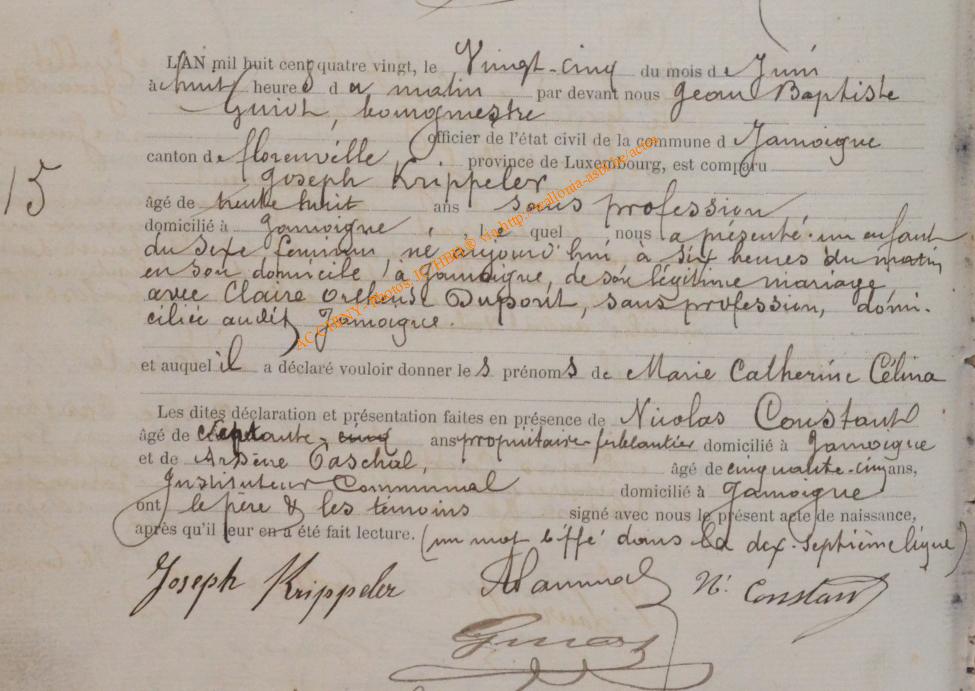 L'AN mil huit cent quatre vingt, le Vingt-cinq du mois de Juin
à huit heures du matin par devant nous Jean Baptiste
Guiot, bourgmestre
officier de l'état civil de la commune d Jamoigne
canton de florenville province de Luxembourg, est comparu
15
Joseph Krippeler
âgé de trente huit ans sans profession
domicilié à Jamoigne, lequel nous a présenté un enfant
du sexe féminin, né aujourd'hui à six heures du matin
en son domicile à Jamoigne, de son légitime mariage
avec Claire Orthense Dupont, sans profession, domi-
ciliée audit Jamoigne.
et auquel il a déclaré vouloir donner les prénoms de Marie Catherine Célina
Les dites déclaration et présentation faites en présence de Nicolas Constant
âgé de septante cinq ans propriétaire domicilié à Jamoigne
et de Arsène Paschal, âgé de cinquante-cinq ans,
Instituteur Communal domicilié à Jamoigne
ont le père & les témoins signé avec nous le présent acte de naissance,
après qu'il leur en a été fait lecture. (un mot biffé dans la dix-septième ligne)
Joseph Krippeler N. Constant